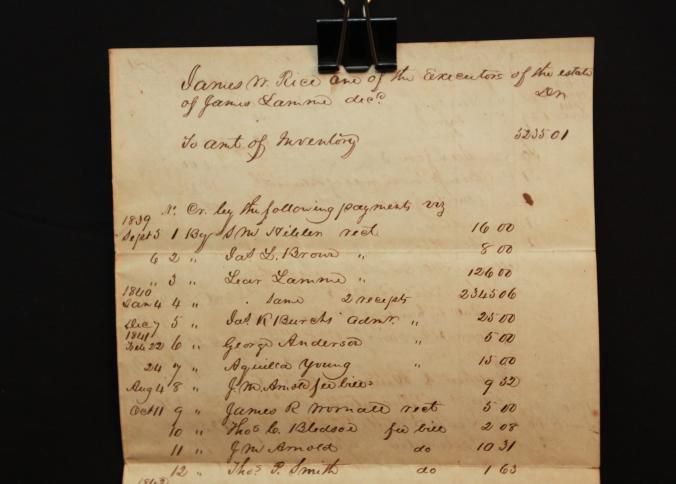 James W. Rice One of the Executors of the estate
of James Lamme decd.
Dr
To amt of Inventory 5235 01
No. Cr. by the following payments viz
1839
Sept 5 1 By S M Hibler rect 16 00
6 2 " Jas L. Brown " 8 00
" 3 " Lear Lamme " 126 00
1840
Jan 4 4 " . same 2 receipts 2345 06
Dec 7 5 " Jas R Burch's admr. " 25 00
1841
Feb 22 6 " George Anderson " 5 00
24 7 " Aquilla Young " 15 00
Aug 4 8 " J. M. Arnold fee bills 9 32
Oct 11 9 " James R Wornall rect 5 00
10 " Thos C. Bledsoe fee bill 2 08
11 " J M Arnold do 10 31
12 " Thos P. Smith do 1 63
1842